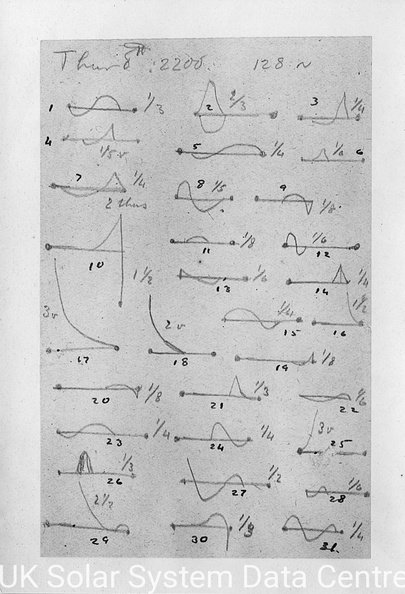 2200. 128 ~
1 1/3 2 2/3 3 1/4
4 1/5 v 5 1/4 1/6 6
7 1/4 8 1/5 9 1/8
10 1 1/2 11 1/8 12 1/6
13 1/6 14 1/4
3v 17 2v 18 15 1/4 16 1 1/2
19 1/8
20 1/8 21 1/3 22 1/6
23 1/4 24 1/4 25 3v
26 1/3 27 1/2 28 1/6
2 1/2 29 30 31 1/4
UK Solar System Data Centre